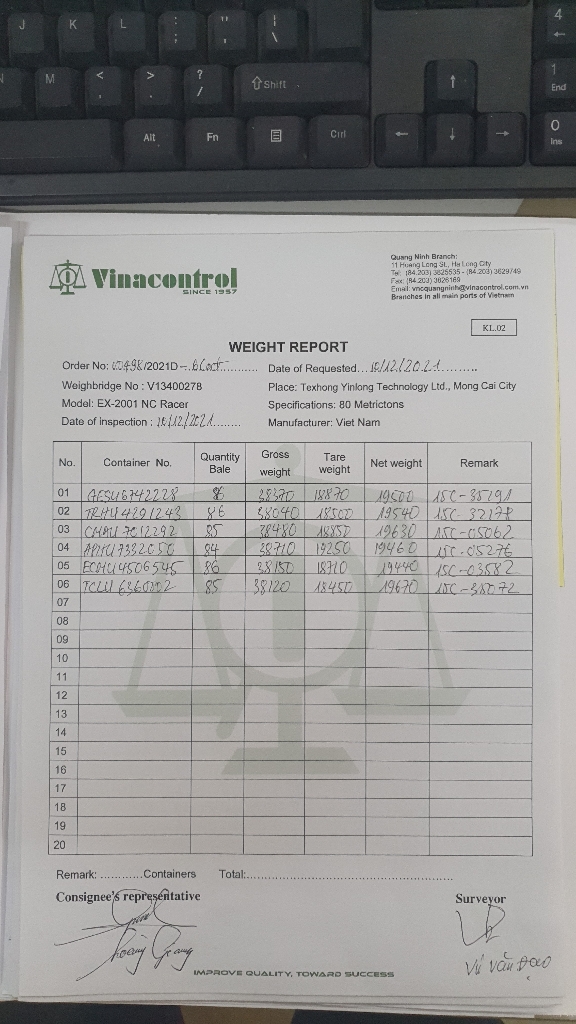 J K L : ; " ' | \ 4 ←
N M < , > . ? / Shift ↑ 1 End
Alt Fn Ctrl ← ↓ → 0 Ins
Vinacontrol
SINCE 1957
Quang Ninh Branch:
11 Hoang Long St., Ha Long City
Tel: (84.203) 3825535 - (84.203) 3629749
Fax: (84.203) 3826169
Email: vncquangninh@vinacontrol.com.vn
Branches in all main ports of Vietnam
KL.02
WEIGHT REPORT
Order No: /2021D Date of Requested...10/12/2021
Weighbridge No : V13400278 Place: Texhong Yinlong Technology Ltd., Mong Cai City
Model: EX-2001 NC Racer Specifications: 80 Metrictons
Date of inspection : 10/12/2021 Manufacturer: Viet Nam
No. Container No. Quantity Bale Gross weight Tare weight Net weight Remark
01 86 38370 18870 19500
02 TRHU 4291243 86 38040 18500 19540 15C-32178
03 85 38480 18850 19630 15C-05062
04 84 38710 19250 19460 15C-05276
05 86 38150 18710 19440 15C-03582
06 85 38120 18450 19670 15C-38072
07
08
09
10
11
12
13
14
15
16
17
18
19
20
Remark: ............Containers Total:
Consignee's representative Surveyor
Hoàng Giang Vũ Văn Đạo
IMPROVE QUALITY, TOWARD SUCCESS